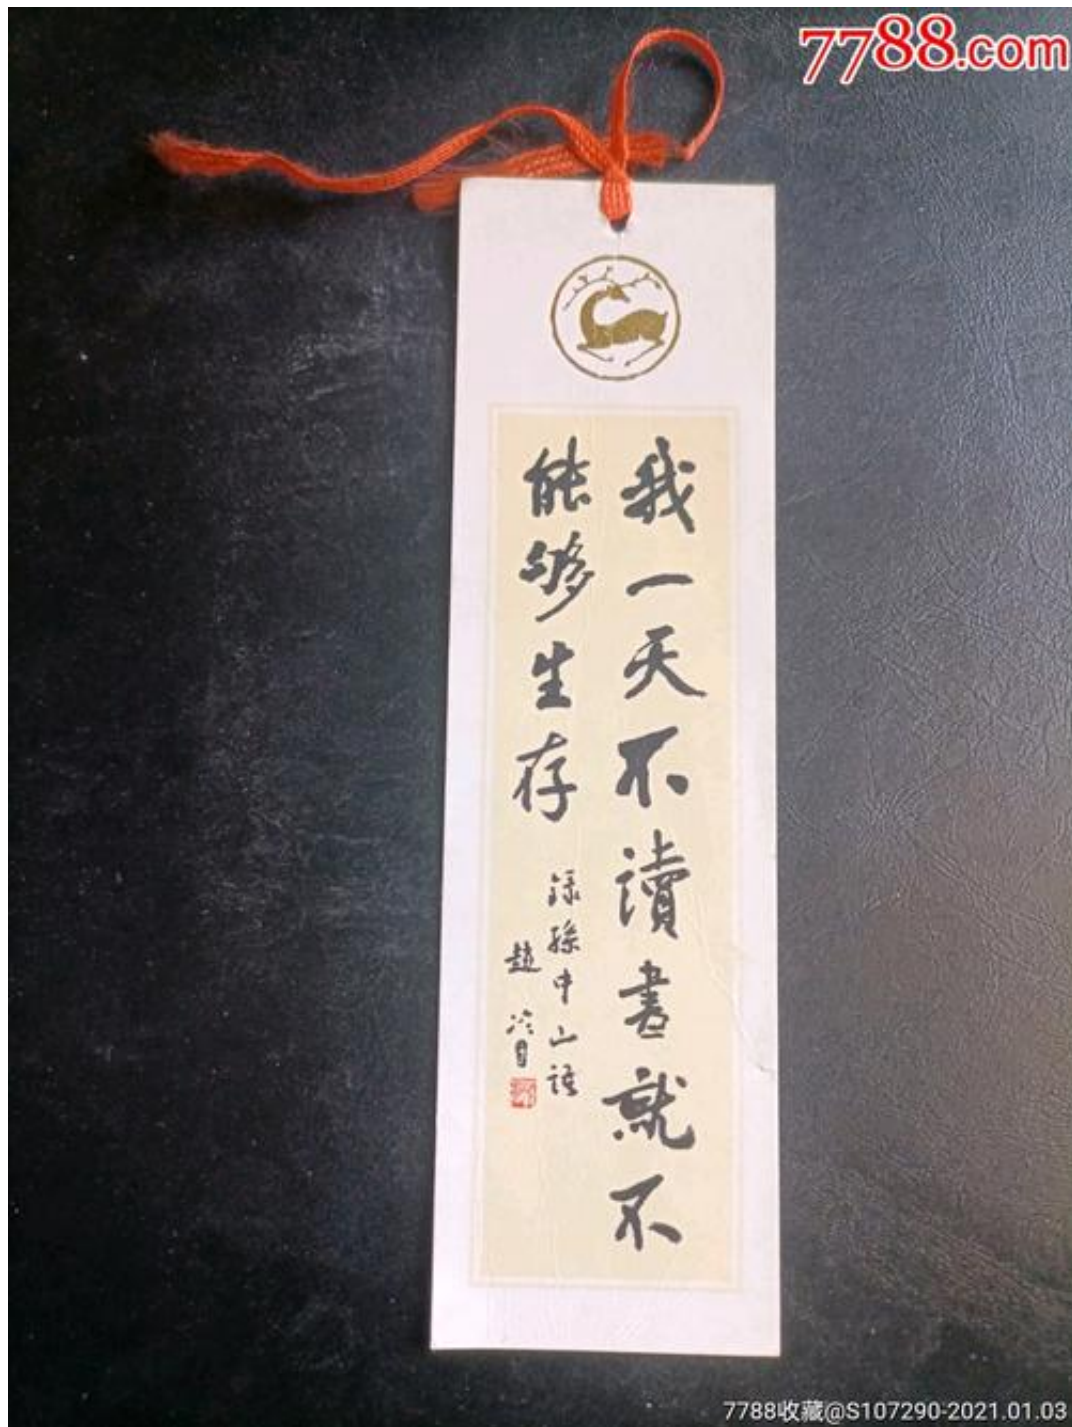 7788.com
我一天不讀書就不
能够生存
録孫中山語
趙冷月
7788收藏@S107290-2021.01.03